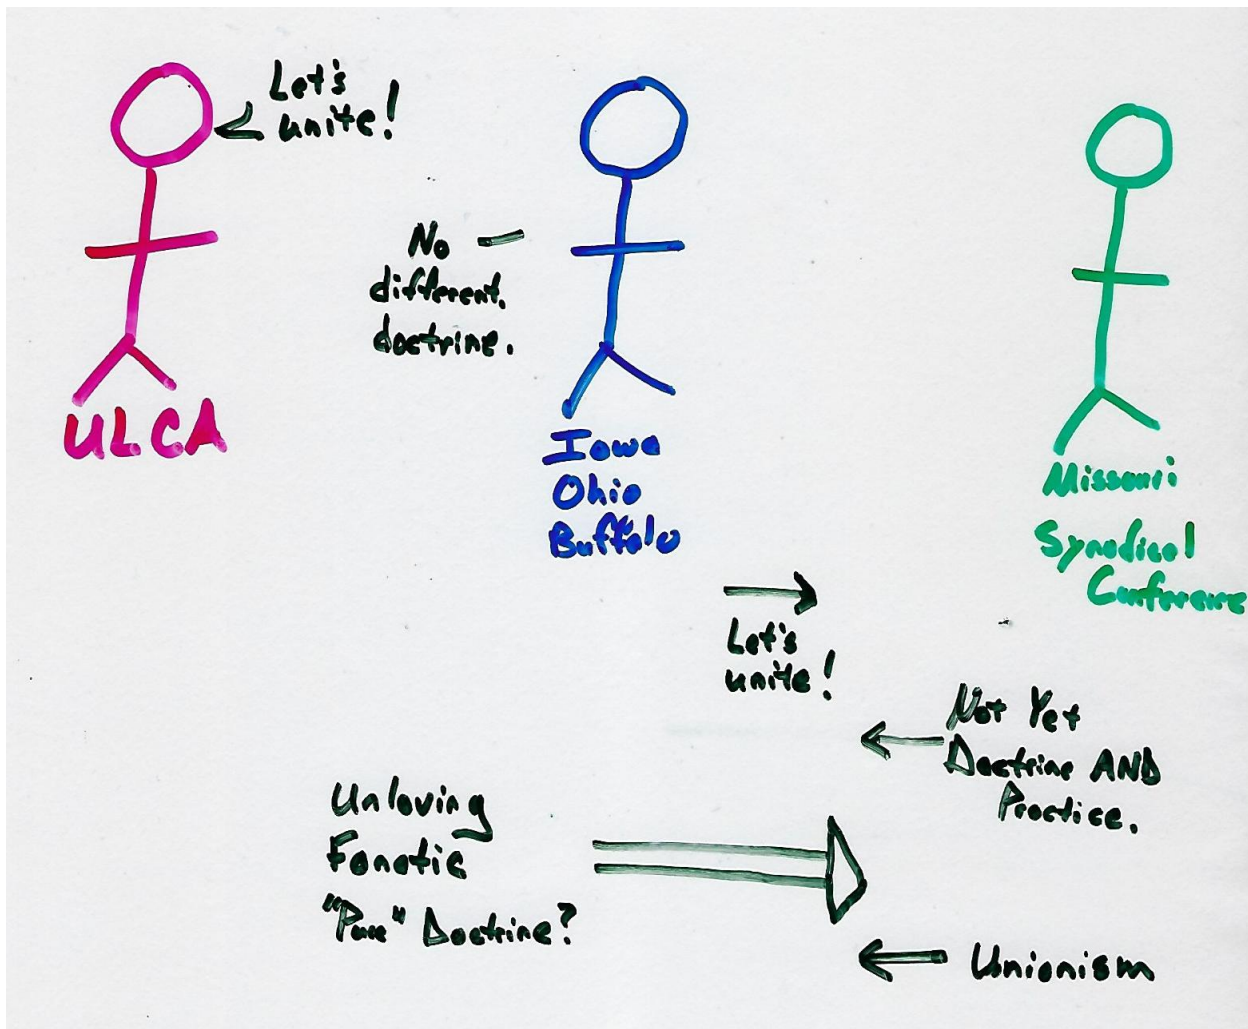 Let's
unite!
No
different.
doctrine.
ULCA
Iowa
Ohio
Buffalo
Missouri
Synodical
Conference
Let's
unite!
Not Yet
Doctrine AND
Practice.
Unloving
Fanatic
"Pure" Doctrine?
Unionism